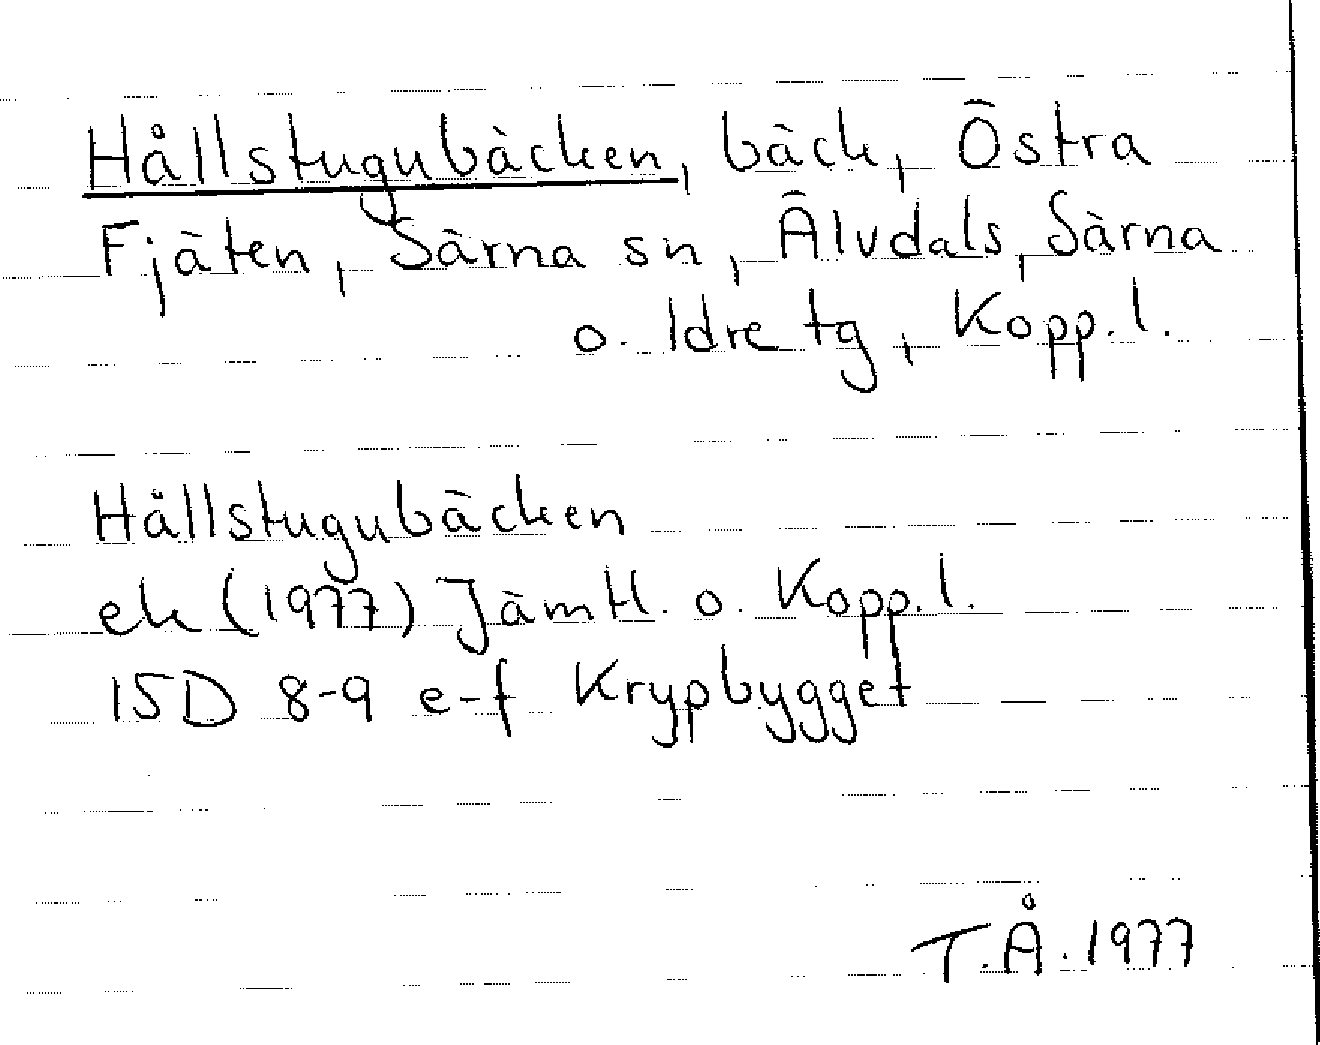 Hållstugubäcken, bäck, Östra
Fjäten, Särna sn, Älvdals, Särna
o. Idre tg, Kopp. l.
Hållstugubäcken
ek (1977) Jämtl. o. Kopp. l.
15D 8-9 e-f Krypbygget
T.Å. 1977